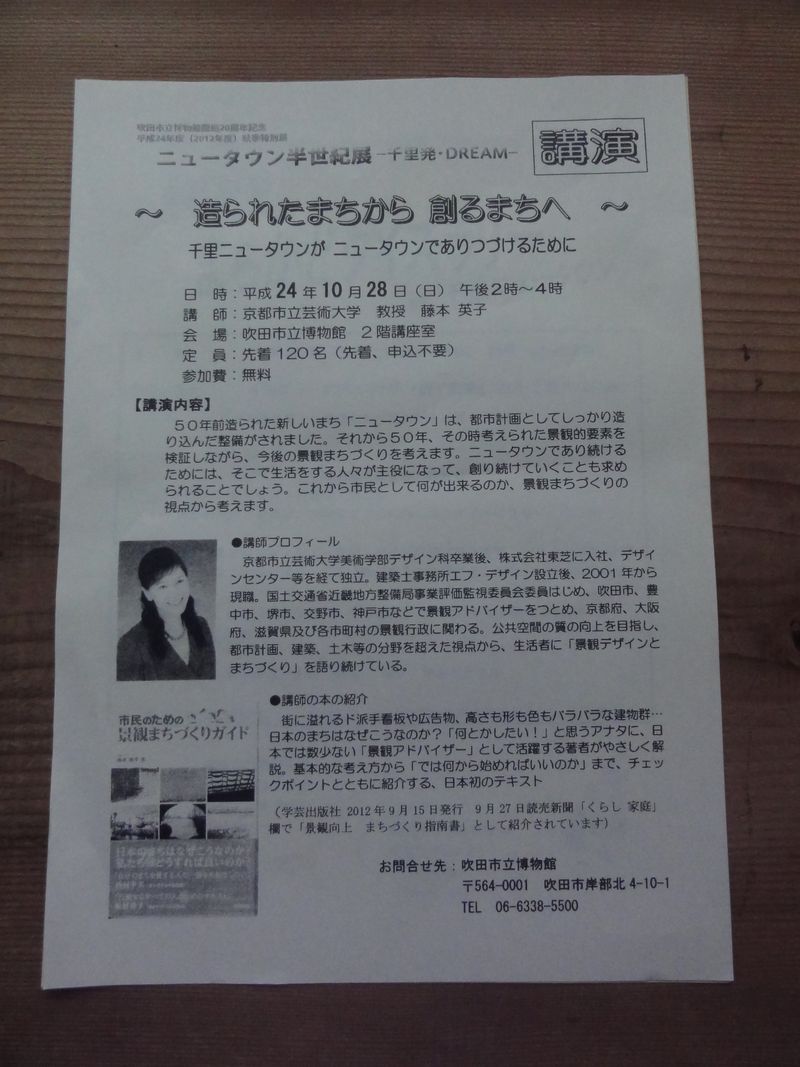 吹田市立博物館開館20周年記念
平成24年度（2012年度）秋季特別展
ニュータウン半世紀展 −千里発・DREAM−
講演
～　造られたまちから 創るまちへ　～
千里ニュータウンが ニュータウンでありつづけるために
日　時：平成 24 年 10 月 28 日（日） 午後２時～４時
講　師：京都市立芸術大学　教授　藤本 英子
会　場：吹田市立博物館　２階講座室
定　員：先着１２０名（先着、申込不要）
参加費：無料
【講演内容】
５０年前造られた新しいまち「ニュータウン」は、都市計画としてしっかり造
り込んだ整備がされました。それから５０年、その時考えられた景観的要素を
検証しながら、今後の景観まちづくりを考えます。ニュータウンであり続ける
ためには、そこで生活をする人々が主役になって、創り続けていくことも求め
られることでしょう。これから市民として何が出来るのか、景観まちづくりの
視点から考えます。
●講師プロフィール
京都市立芸術大学美術学部デザイン科卒業後、株式会社東芝に入社、デザイ
ンセンター等を経て独立。建築士事務所エフ・デザイン設立後、2001 年から
現職。国土交通省近畿地方整備局事業評価監視委員会委員はじめ、吹田市、豊
中市、堺市、交野市、神戸市などで景観アドバイザーをつとめ、京都府、大阪
府、滋賀県及び各市町村の景観行政に関わる。公共空間の質の向上を目指し、
都市計画、建築、土木等の分野を超えた視点から、生活者に「景観デザインと
まちづくり」を語り続けている。
●講師の本の紹介
街に溢れるド派手看板や広告物、高さも形も色もバラバラな建物群…
日本のまちはなぜこうなのか？「何とかしたい！」と思うアナタに、日
本では数少ない「景観アドバイザー」として活躍する著者がやさしく解
説。基本的な考え方から「では何から始めればいいのか」まで、チェッ
クポイントとともに紹介する、日本初のテキスト
（学芸出版社 2012 年 9 月 15 日発行　9 月 27 日読売新聞「くらし 家庭」
欄で「景観向上　まちづくり指南書」として紹介されています）
市民のための
景観まちづくりガイド
日本のまちはなぜこうなのか？
私たちはどうすれば良いのか？
お問合せ先：吹田市立博物館
〒564-0001　吹田市岸部北 4-10-1
TEL　06-6338-5500